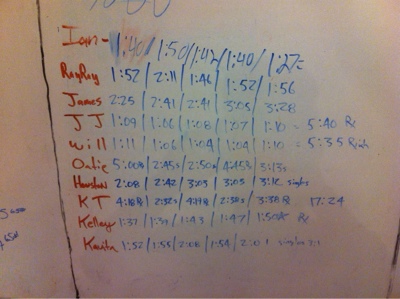 Ian - 1:40 / 1:50 / 1:42 / 1:40 / 1:27
RayRay 1:52 | 2:11 | 1:46 | 1:52 | 1:56
James 2:25 | 2:41 | 2:41 | 3:05 | 3:28
JJ 1:09 | 1:06 | 1:08 | 1:07 | 1:10 = 5:40 Rx
Will 1:11 | 1:06 | 1:04 | 1:04 | 1:10 = 5:35
5:00 | 2:45s | 2:50s | 4:45 | 3:13s
2:08 | 2:42 | 3:05 | 3:05 |
KT 4:18 | 2:32s | 4:19 | 2:38s | 3:38 17:24
Kelley 1:37 | 1:39 | 1:43 | 1:47 | 1:50 Rx
1:52 | 1:55 | 2:08 | 1:54 |